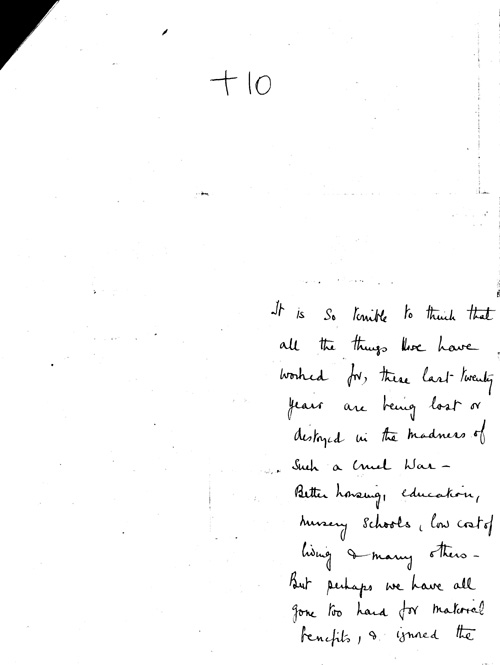 +10
It is so terrible to think that
all the things we have
worked for, these last twenty
years are being lost or
destroyed in the madness of
such a cruel War –
Better housing, education,
nursery schools, low cost of
living & many others –
But perhaps we have all
gone too hard for material
benefits, & ignored the